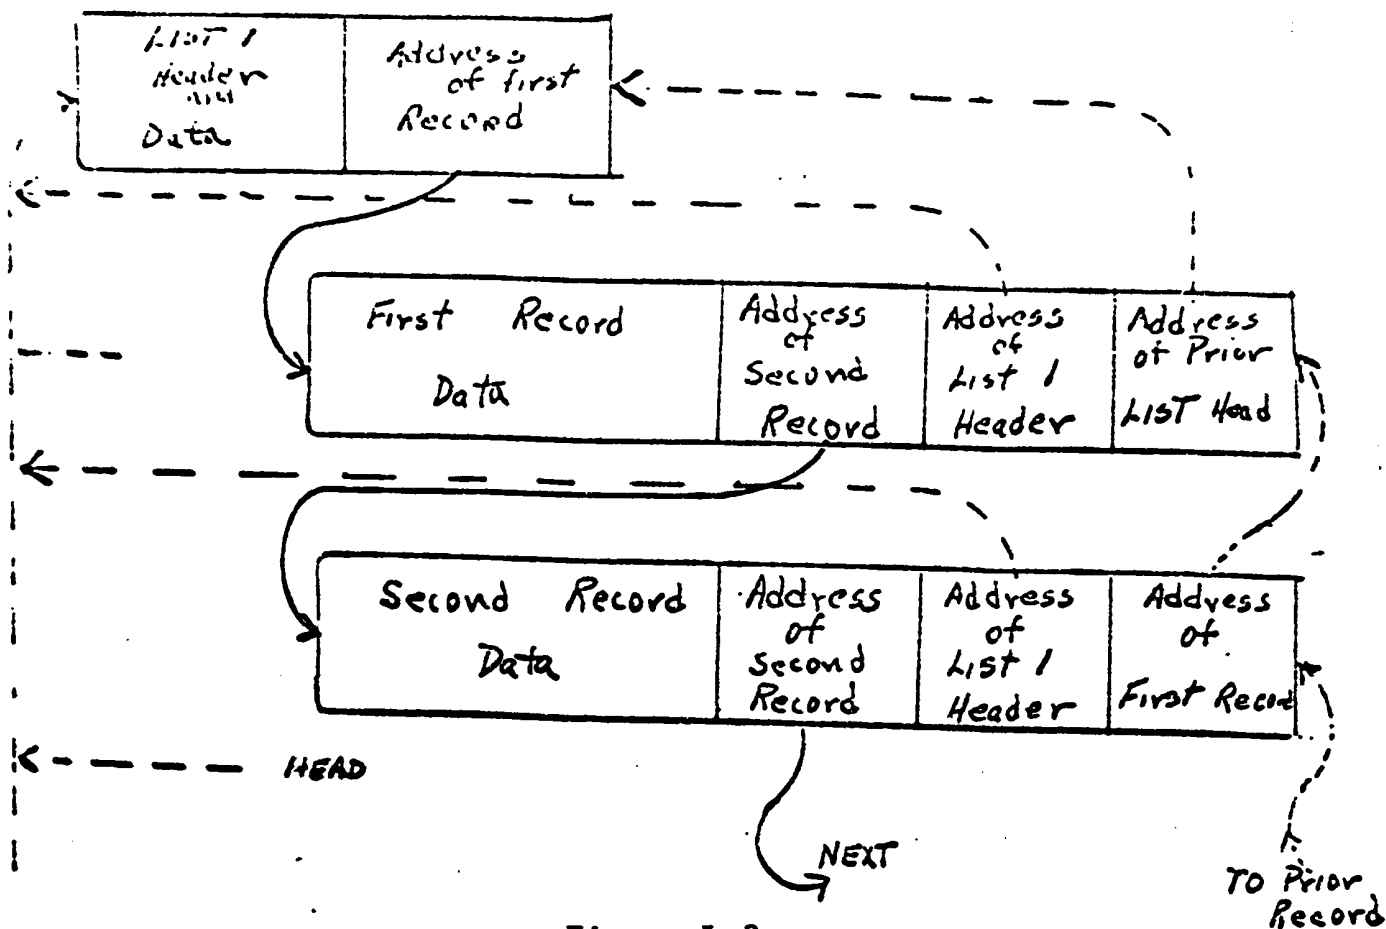 LIST 1
Header
Data
Address
of first
Record
First Record
Data
Address
of
Second
Record
Address
of
List 1
Header
Address
of Prior
LIST Head
Second Record
Data
Address
of
Second
Record
Address
of
List 1
Header
Address
of
First Record
HEAD
NEXT
TO Prior
Record